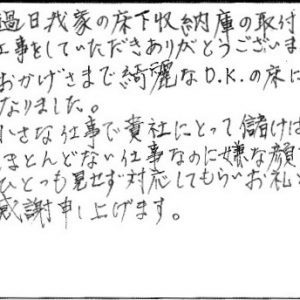 過日我家の床下収納庫の取付
工事をしていただきありがとうございま
おかげさまで綺麗なD.K.の床に
なりました。
小さな仕事で貴社にとって儲けは
ほとんどない仕事なのに嫌な顔
ひとつも見せず対応してもらいお礼と
感謝申し上げます。